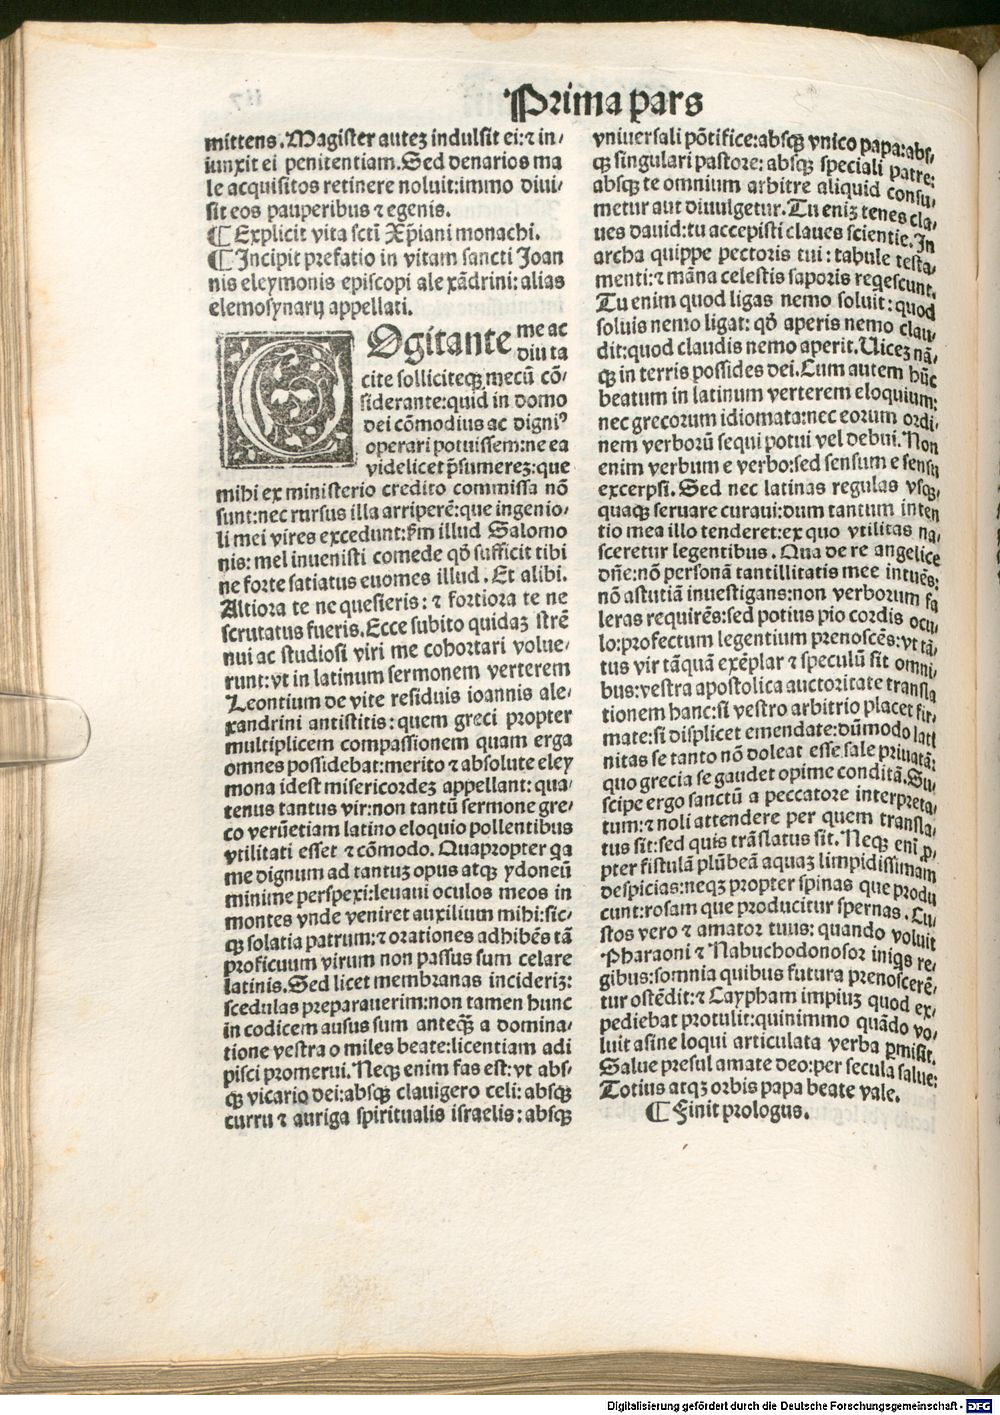 Prima pars
mittens. Magister autez indulsit ei: ⁊ in/
iunxit ei penitentiam. Sed denarios ma
le acquisitos retinere noluit: immo diui/
sit eos pauperibus ⁊ egenis.
¶ Explicit vita scti Xp̄iani monachi.
¶ Incipit prefatio in vitam sancti Joan
nis eleymonis episcopi ale xādrini: alias
elemosynarij appellati.
COgitante me ac
diu ta
cite solliciteqꝫ mecū cō/
siderante: quid in domo
dei cōmodius ac digniꝰ
operari potuissem: ne ea
videlicet p̄sumerez: que
mihi ex ministerio credito commissa nō
sunt: nec rursus illa arriperē: que ingenio/
li mei vires excedunt: ẜm illud Salomo
nis: mel inuenisti comede qđ sufficit tibi
ne forte satiatus euomes illud. Et alibi.
Altiora te ne quesieris: ⁊ fortiora te ne
scrutatus fueris. Ecce subito quidaz strē
nui ac studiosi viri me cohortari volue/
runt: vt in latinum sermonem verterem
Leontium de vite residuis ioannis ale/
xandrini antistitis: quem greci propter
multiplicem compassionem quam erga
omnes possidebat: merito ⁊ absolute eley
mona idest misericordez appellant: qua/
tenus tantus vir: non tantū sermone gre/
co verūetiam latino eloquio pollentibus
vtilitati esset ⁊ cōmodo. Quapropter qa
me dignum ad tantuz opus atqꝫ ydoneū
minime perspexi: leuaui oculos meos in
montes vnde veniret auxilium mihi: sic/
qꝫ solatia patrum: ⁊ orationes adhibēs tā
proficuum virum non passus sum celare
latinis. Sed licet membranas incideriz:
scedulas preparauerim: non tamen hunc
in codicem ausus sum anteqꝫ̄ a domina/
tione vestra o miles beate: licentiam adi
pisci promerui. Neqꝫ enim fas est: vt abs/
qꝫ vicario dei: absqꝫ clauigero celi: absqꝫ
curru ⁊ auriga spiritualis israelis: absqꝫ
vniuersali pōtifice: absqꝫ vnico papa: abs/
qꝫ singulari pastore: absqꝫ speciali patre:
absqꝫ te omnium arbitre aliquid consu/
metur aut diuulgetur. Tu eniz tenes cla/
ues dauid: tu accepisti claues scientie. In
archa quippe pectoris tui: tabule testa/
menti: ⁊ māna celestis saporis reqescunt.
Tu enim quod ligas nemo soluit: quod
soluis nemo ligat: qđ aperis nemo clau
dit: quod claudis nemo aperit. Uicez nā/
qꝫ in terris possides dei. Cum autem hūc
beatum in latinum verterem eloquium:
nec grecorum idiomata: nec eorum ordi/
nem verborū sequi potui vel debui. Non
enim verbum e verbo: sed sensum e sensu
excerpsi. Sed nec latinas regulas vsqꝫ/
quaqꝫ seruare curaui: dum tantum inten
tio mea illo tenderet: ex quo vtilitas na/
sceretur legentibus. Qua de re angelice
dn̄e: nō personā tantillitatis mee intuēs:
nō astutiā inuestigans: non verborum fa
leras requirēs: sed potius pio cordis ocu/
lo: profectum legentium prenoscēs: vt tā/
tus vir tāquā exēplar ⁊ speculū sit omni/
bus: vestra apostolica auctoritate transla
tionem hanc: si vestro arbitrio placet fir/
mate: si displicet emendate: dūmodo lati
nitas se tanto nō doleat esse sale priuatā:
quo grecia se gaudet opime conditā. Su/
scipe ergo sanctū a peccatore interpreta/
tum: ⁊ noli attendere per quem transla/
tus sit: sed quis trāslatus sit. Neqꝫ eni ꝓ/
pter fistulā plūbeā aquaz limpidissimam
despicias: neqꝫ propter spinas que produ
cunt: rosam que producitur spernas. Cu/
stos vero ⁊ amator tuus: quando voluit
Pharaoni ⁊ Nabuchodonosor iniqs re/
gibus: somnia quibus futura prenoscerē/
tur ostēdit: ⁊ Caypham impiuz quod ex/
pediebat protulit: quinimmo quādo vo/
luit asine loqui articulata verba ꝑmisit.
Salue presul amate deo: per secula salue:
Totius atqꝫ orbis papa beate vale.
¶ Finit prologus.
Digitalisierung gefördert durch die Deutsche Forschungsgemeinschaft - DFG